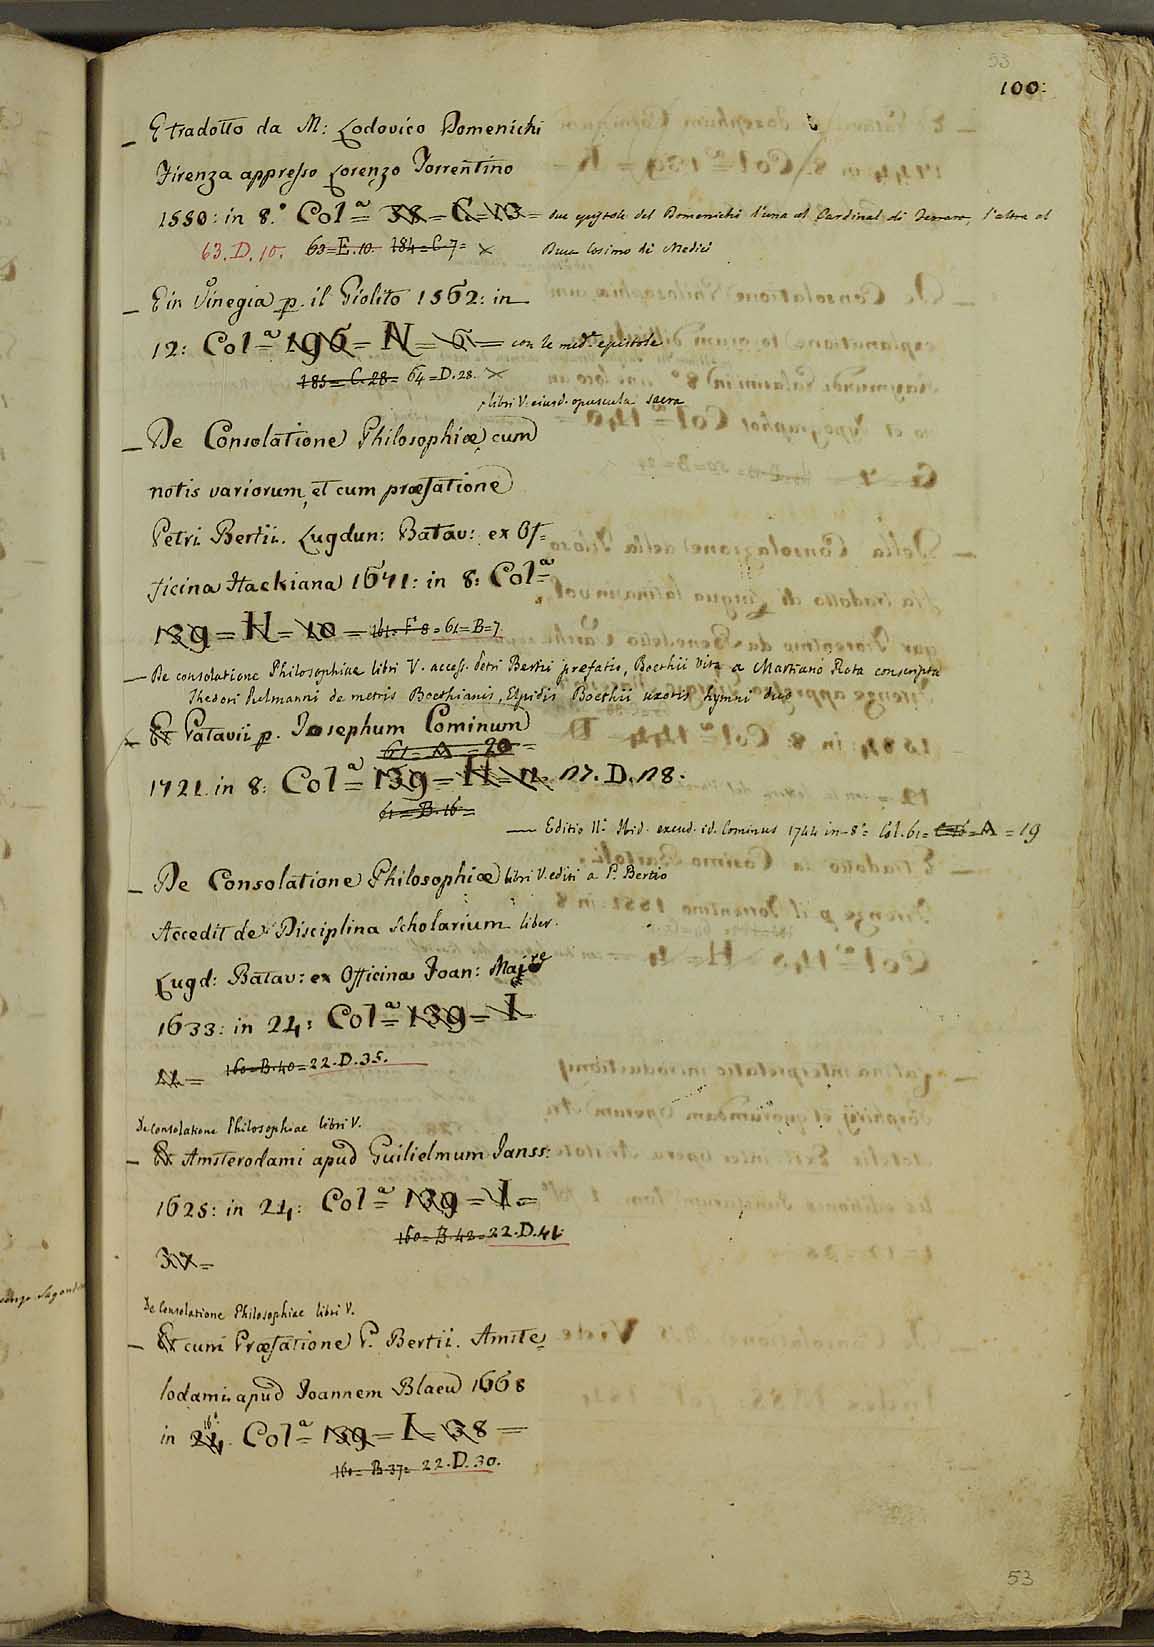 53
100:
_ E tradotto da M: Lodovico Domenichi
Firenza appresso Lorenzo Torrentino
1550: in 8.° Col.ª 38 = C = 13 = due epistole del Domenichi l'una al Cardinal di Ferrara, l'altra al
Duca Cosimo di Medici
63. D. 10. 63 = E. 10. 184 = C. 7 = ×
_ E in Vinegia p. il Giolito 1562: in
12: Col.ª 196 = N = 6 = con le med.e epistole
185 = C. 28 = 64 = D. 28. ×
libri V. eiusd. opuscula sacra
_ De Consolatione Philosophiæ, cum
notis variorum, et cum præfatione
Petri Bertii. Lugdun: Batav: ex Of=
ficina Hackiana 1671: in 8: Col.ª
139 = H = 10 = 161 = F. 8 = 61 = B = 7
_ De consolatione Philosophiae libri V. access. Petri Bertii præfatio, Boethii vita a Martiano Rota conscripta
Thedori Pulmanni de metris Boethianis, Elpidis Boethii uxoris hymni duo
_ Et Patavii p. Iosephum Cominum
61 = A = 20 =
1721. in 8: Col.ª 139 = H = 11. 17. D. 18.
61 = B. 16 =
_ Editio II.ª Ibid. excud. id. Cominus 1744 in 8.° Col. 61 = A = 19
_ De Consolatione Philosophiæ libri V. editi a P. Bertio
Accedit de Disciplina Scholarium liber.
Lugd: Batav: ex Officina Ioan: Maire
1633: in 24: Col.ª 139 = I
11 = 160 = B. 40 = 22. D. 35.
De consolatione Philosophiae libri V.
_ Et Amsterodami apud Guilielmum Ianss:
1625: in 24: Col.ª 139 = I =
160 = B. 42 = 22. D. 41.
37 =
De Consolatione Philosophiae libri V.
_ Et cum Præfatione P. Bertii. Amste=
lodami apud Ioannem Blaeu 1668
in 24. 16° Col.ª 139 = I = 38 =
160 = B. 37 = 22. D. 30.
53